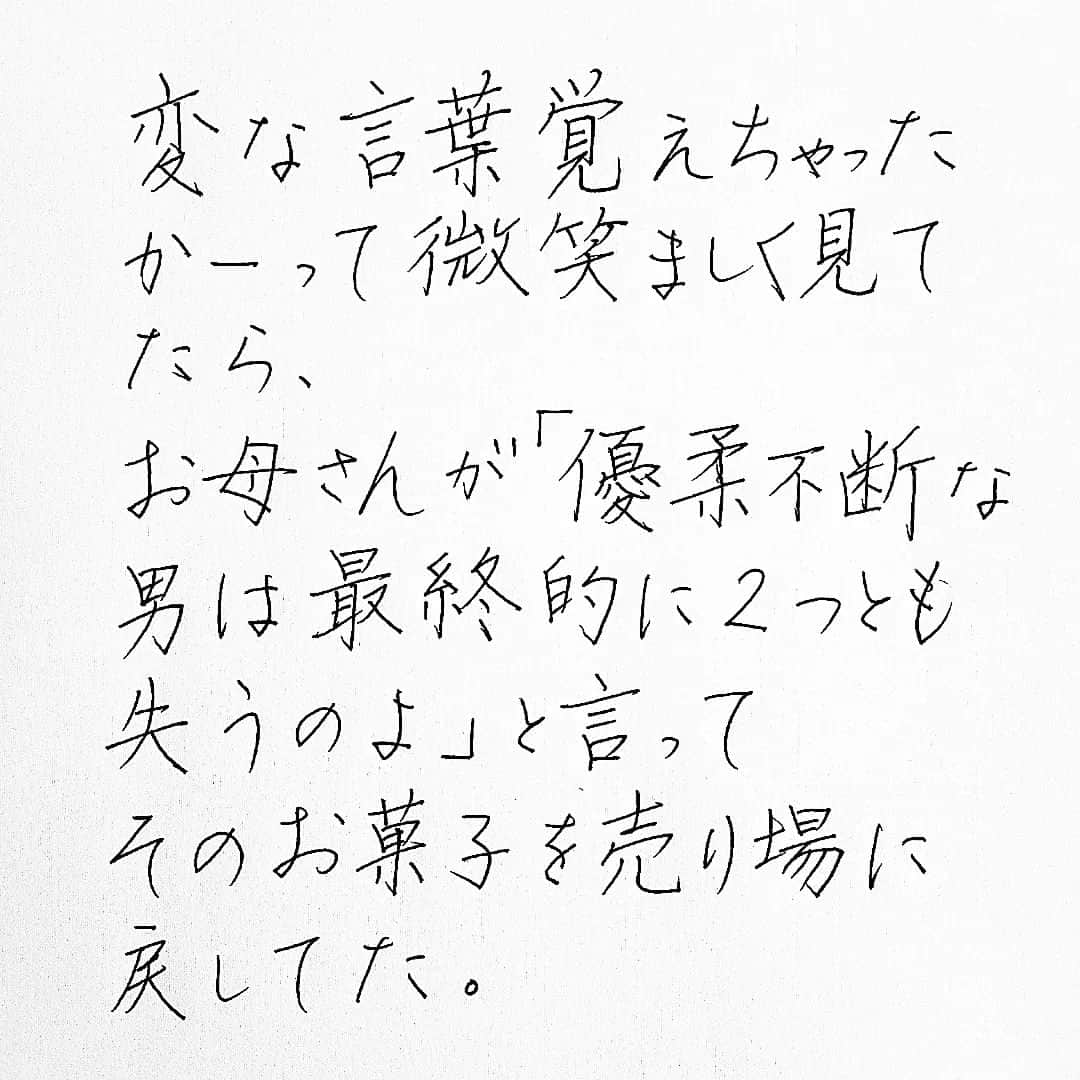 変な言葉覚えちゃった
かーって微笑ましく見て
たら、
お母さんが「優柔不断な
男は最終的に2つとも
失うのよ」と言って
そのお菓子を売り場に
戻してた。